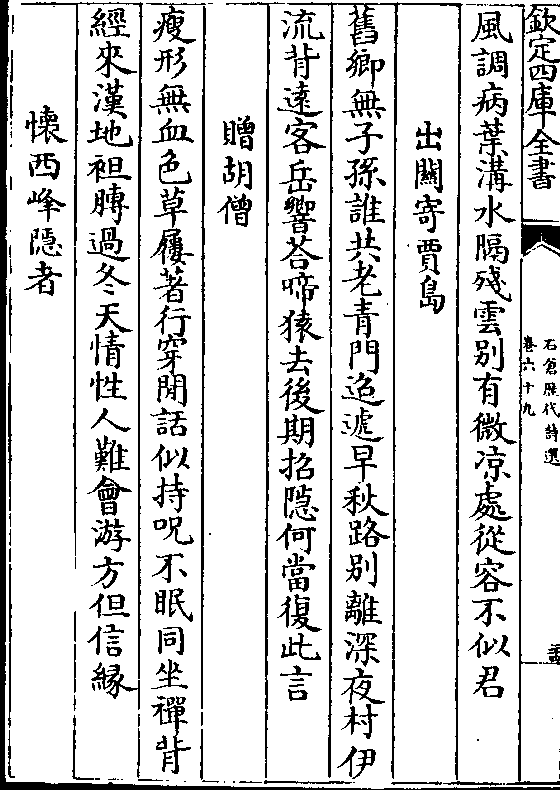 欽定四庫全書
石倉歷代詩選
卷六十九
風調病葉溝水膈殘雲别有微凉處從容不似君
出關寄賈島
舊鄉無子孫誰共老青門迢遞早秋路别離深夜村伊
流背遠客岳響荅啼猿去後期招隱何當復此言
贈胡僧
瘦形無血色草屨著行穿閒話似持呪不眠同坐禪背
經來漢地袒膊過冬天情性人難會游方但信緣
懷西峰隱者